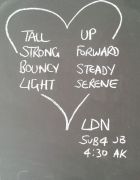 TALL UP
STRONG FORWARD
BOUNCY STEADY
LIGHT SERENE
LDN
SUB4 JB
4:30 AK